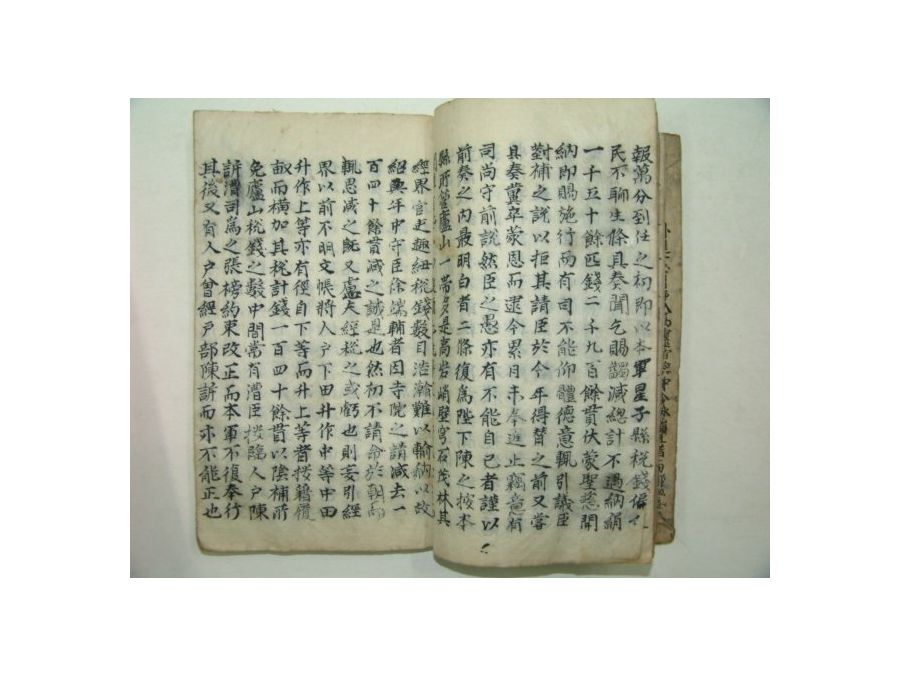 報萬分到任之初即以本軍星子縣稅錢偏
民不聊生條具奏聞乞賜蠲減總計不過納絹
一千五十餘匹錢二千九百餘貫伏蒙聖慈開
納即賜施行而有司不能仰體德意輒引議臣
對補之說以拒其請臣於今年得替之前又嘗
具奏冀卒蒙恩而逮今累月未奉進止竊意有
司尚守前說然臣之愚亦有不能自已者謹以
前奏之內最明白者二條復為陛下陳之按本
縣所管廬山一帶多是高岩峭壁穹石茂林其
經界官吏趣紐稅錢數目浩瀚難以輸納以故
紹興年中守臣徐端輔者因寺院之請減去一
百四十餘貫減之誠是也然初不請命於朝而
輒思減之既又慮夫經稅之或虧也則妄引經
界以前不明文帳將人戶下田升作中等中田
升作上等亦有徑自下等而升上等者按籍履
畝而橫加其稅計錢一百四十餘貫以陰補所
免廬山稅錢之數中間嘗有漕臣按臨人戶陳
訴漕司為之張榜約束改正而本軍不復奉行
其後又有人戶曾經戶部陳訴而亦不能正也